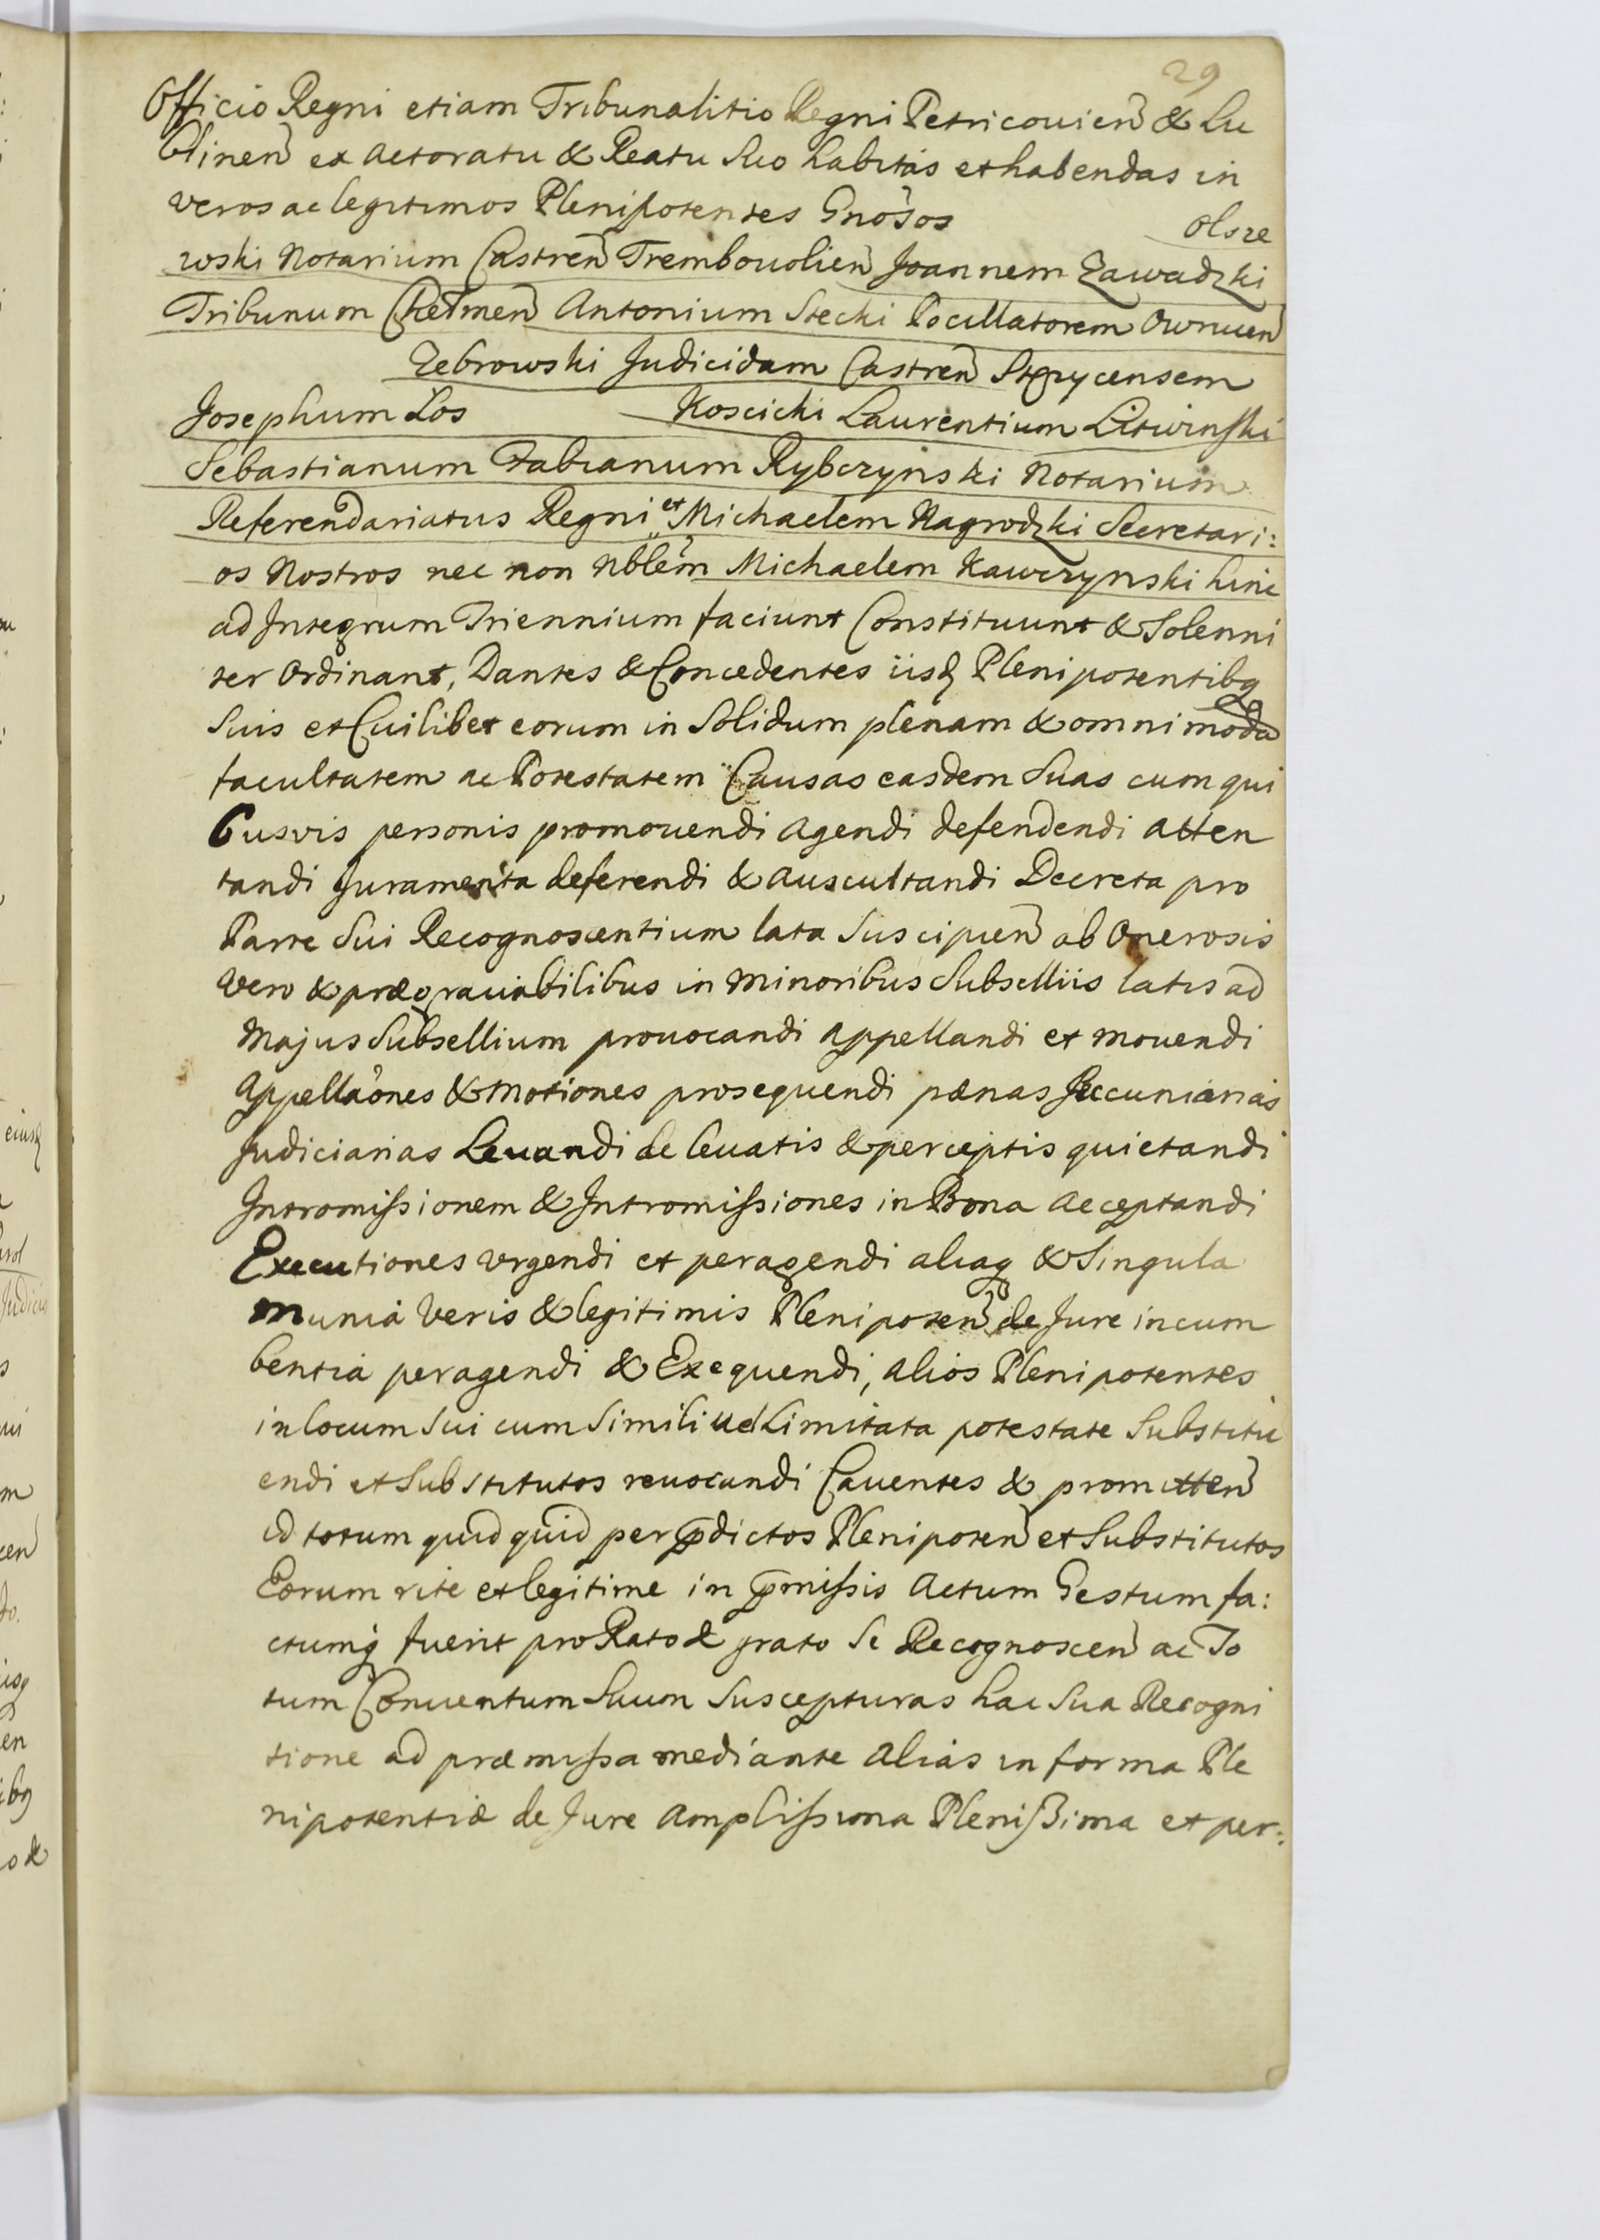 29
Officio Regni etiam Tribunalitio Regni Petricouien & Lu
blinen ex Actoratu & Reatu Suo habitas et habendas in
veros ac legitimos Plenipotentes Gnosos Olsze
wski Notarium Castren Trembouolien Joannem Zawadzki
Tribunum Chelmen Antonium Stecki Pocillatorem Owruen
Zebrowski Judicidam Castren Stezycensem
Josephum Los Koscicki Laurentium Litwinski
Sebastianum Fabianum Rybczynski Notarium
Referendariatus Regni et Michaelem Nagrodzki Secretari:
os Nostros nec non Nblem Michaelem Kawczynski hinc
ad Integrum Triennium faciunt Constituunt & Solenni
ter Ordinant, Dantes & Concedentes iisq Plenipotentibq
Suis et Cuilibet eorum in Solidum plenam & omnimoda
facultatem ac Potestatem Causas easdem Suas cum qui
busvis personis promouendi Agendi defendendi atten
tandi Juramenta deferendi & Auscultandi Decreta pro
Parte Sui Recognoscentium lata Suscipien ab Onerosis
vero & prægrauiabilibus in Minoribus Subselliis latis ad
Majus Subsellium prouocandi Appellandi et Mouendi
Appellaones & Motiones prosequendi pænas Peccuniarias
Judiciarias Leuandi de leuatis & perceptis quietandi
Intromissionem & Intromissiones in Bona Acceptandi
Executiones vrgendi et peragendi aliaq & Singula
munia veris & legitimis Plenipoten de Jure incum
bentia peragendi & Exequendi, alios Plenipotentes
in locum Sui cum Simili uel Limitata potestate Substitu
endi et Substitutos reuocandi Cauentes & promitten
id totum quid quid per prdictos Plenipoten et Substitutos
Eorum rite et legitime in prmissis Actum Gestum fa:
ctumq fuerit pro Rato & grato Se Recognoscen ac To
tum Conuentum Suum Suscepturas hac Sua Recogni
tione ad præmissa mediante Alias in forma Ple
nipotentiæ de Jure Amplissima Plenissima et per: